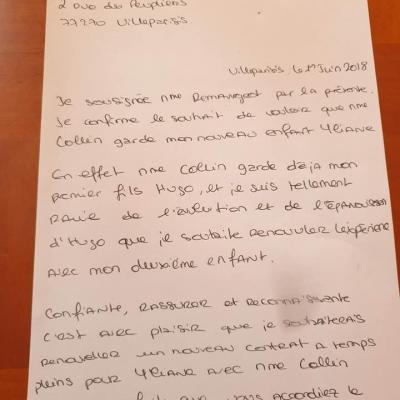 2 Duo des Peupliers
77270 Villeparisis.
Villeparisis, le 1er Juin 2018
Je soussignée mme Remaugeat par la présente.
Je confirme le souhait de vouloir que mme
Collin garde mon nouveau enfant Yliane
En effet mme Collin garde déjà mon
premier fils Hugo, et je suis tellement
Ravie de l'évolution et de l'épanouissen
d'Hugo que je souhaite renouvuler l'expérience
avec mon deuxième enfant.
Confiante, rassurer et reconnaissante
c'est avec plaisir que je souhaiterais
renouveler un nouveau contrat a temps
pleins pour Yliane avec mme Collin
que vous accordiez le